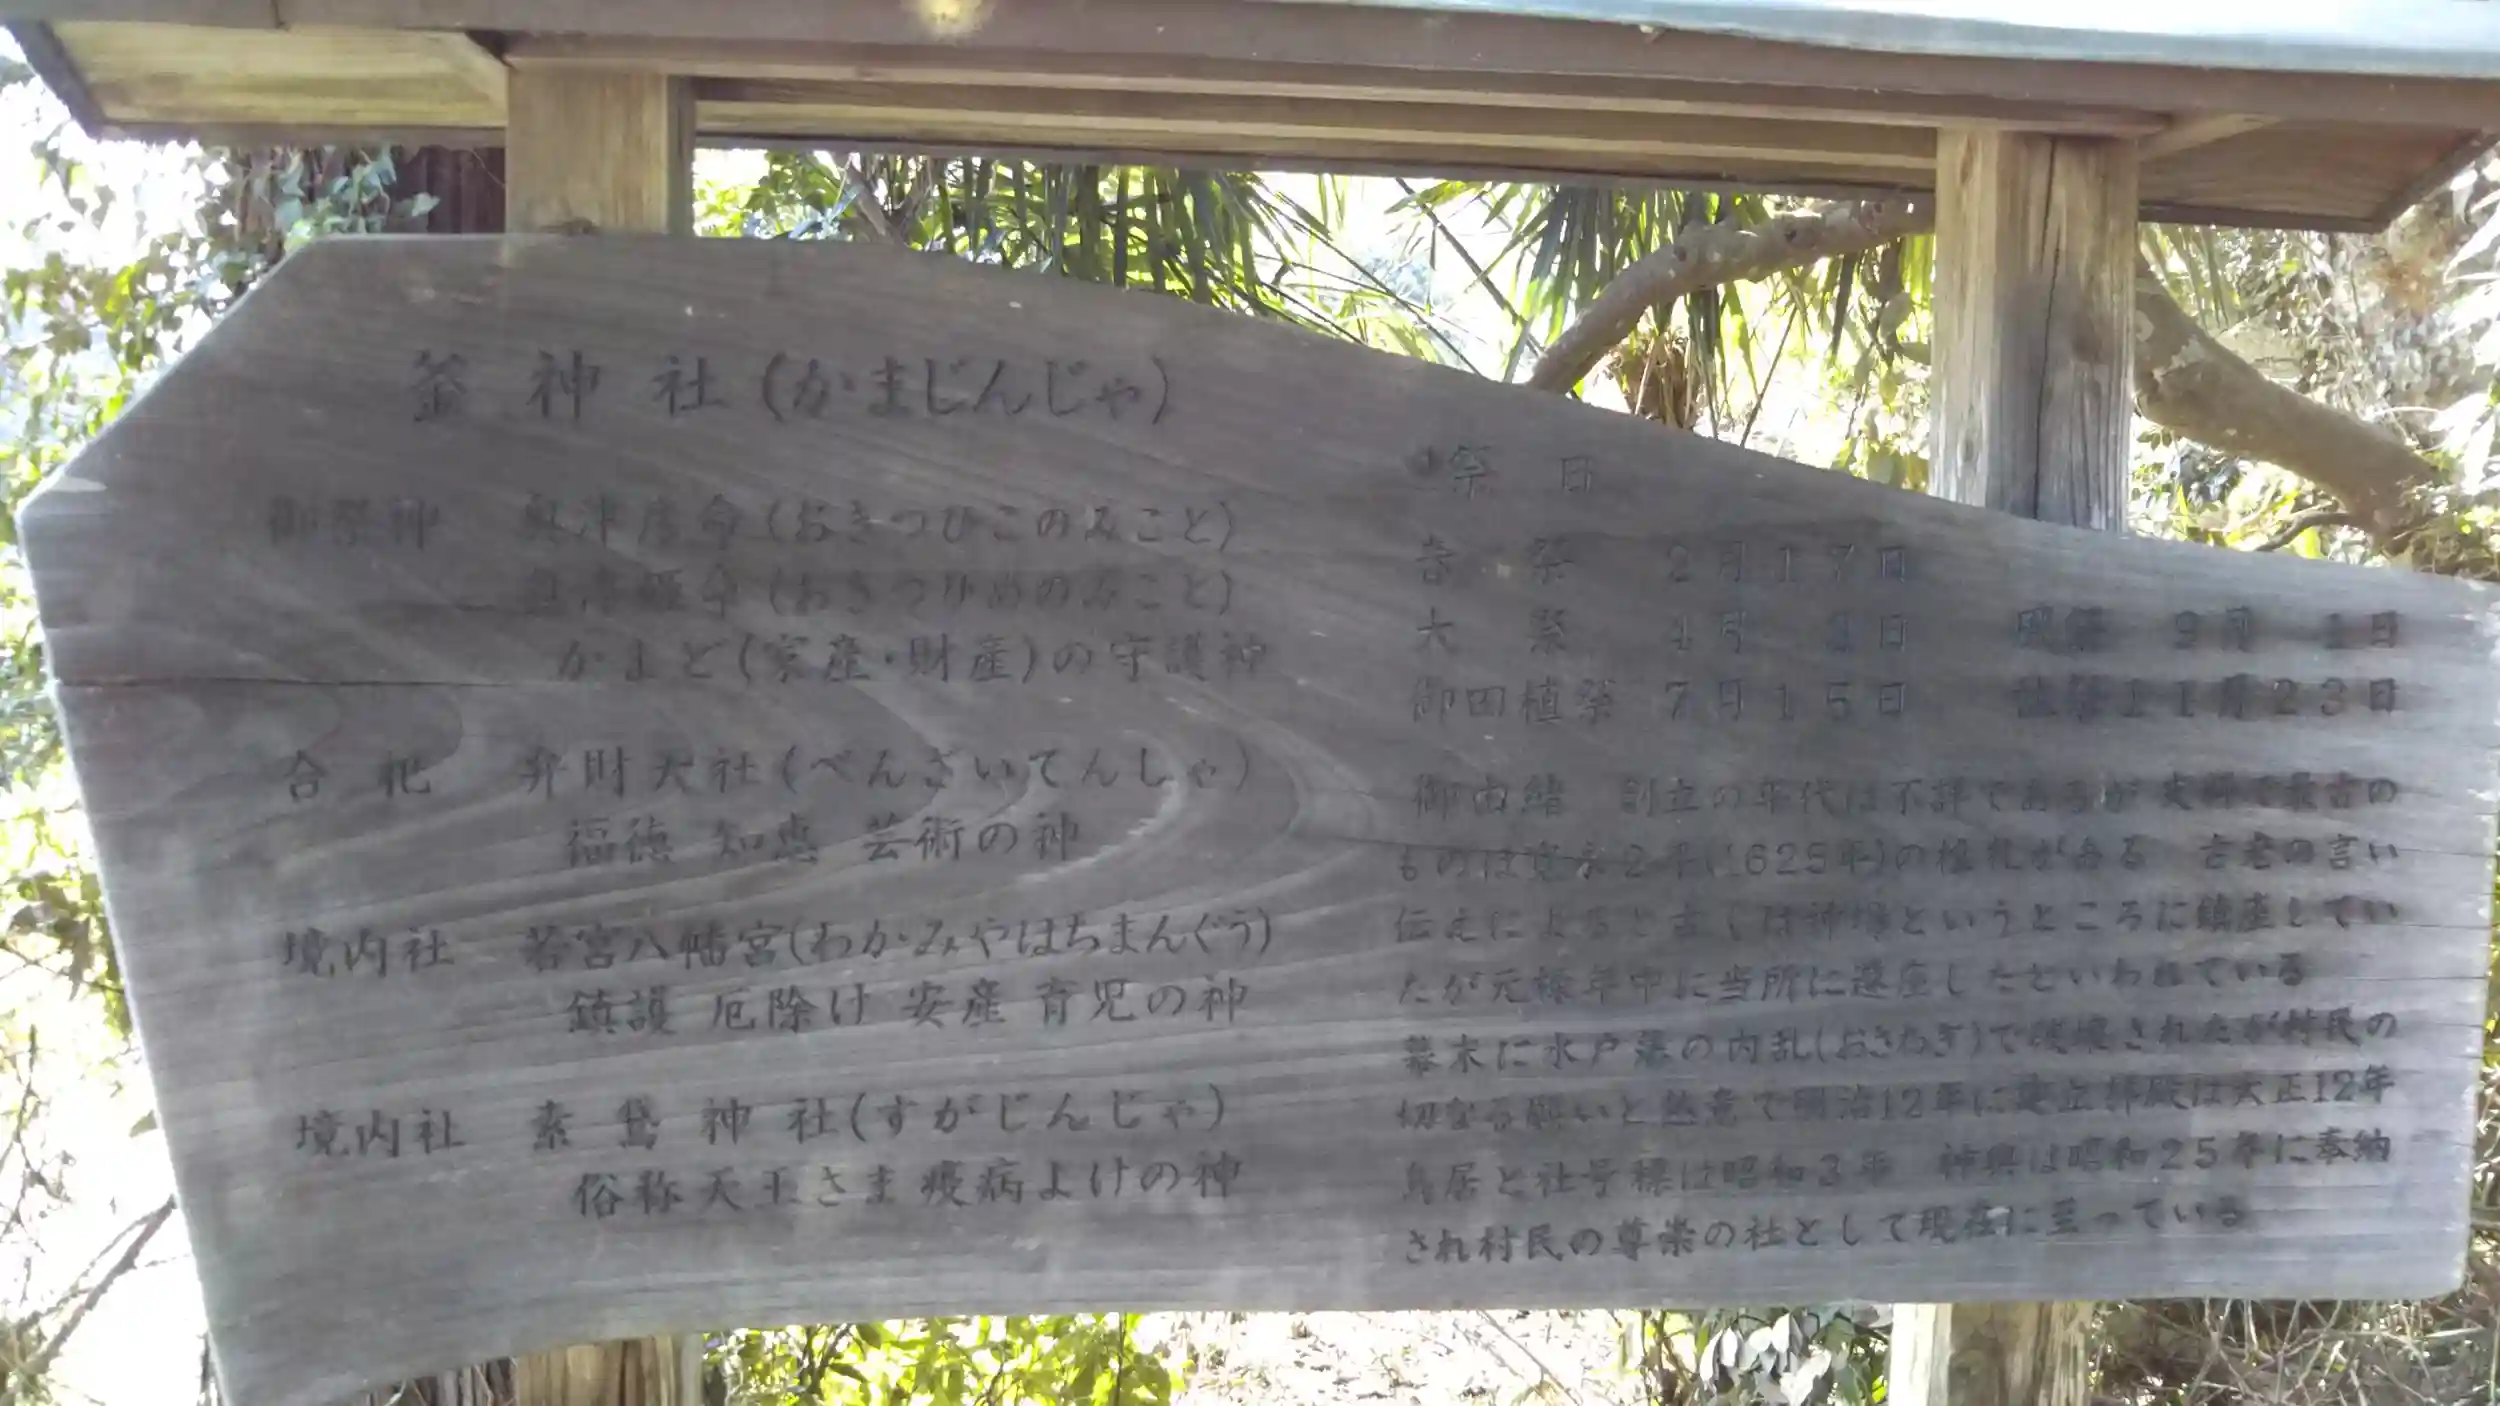 釜神社(かまじんじゃ)
御祭神 奥津彦命(おきつひこのみこと)
奥津姫命(おきつひめのみこと)
かまど(家産・財産)の守護神
合祀 弁財天社(べんざいてんしゃ)
福徳 知恵 芸術の神
境内社 若宮八幡宮(わかみやはちまんぐう)
鎮護 厄除け 安産 育児の神
境内社 素鵞神社(すがじんじゃ)
俗称天王さま疫病よけの神
祭日
春祭 2月17日
大祭 4月 日 風祭 9月 1日
御田植祭 7月15日 祭11月23日
御由緒 創立の年代は不詳であるが史料で最古の
ものは寛永2年(1625年)の棟札がある 古老の言い
伝えによると古くは神場というところに鎮座してい
たが元禄年中に当所に遷座したといわれている
幕末に水戸藩の内乱(おさわぎ)で破壊されたが村民の
切なる願いと熱意で明治12年に建立拝殿は大正12年
鳥居と社号標は昭和3年 神輿は昭和25年に奉納
され村民の尊崇の社として現在に至っている